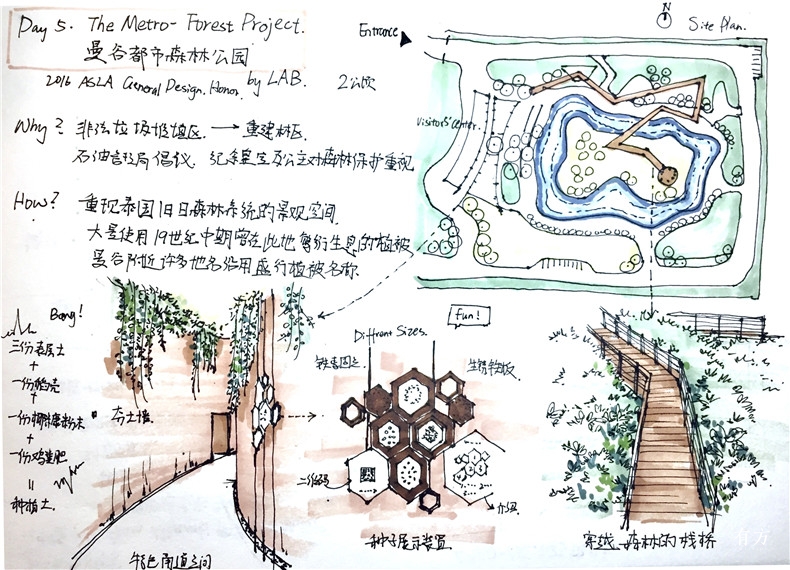 Day 5. The Metro-Forest Project.
曼谷都市森林公园
2016 ASLA General Design. Honor. by LAB. 2公顷
Why? 非法垃圾填埋区 → 重建林区
石油管理局倡议. 纪念皇室及公主对森林保护重视
How? 重现泰国旧日森林系统的景观空间.
大量使用19世纪中期曾在此地繁衍生息的植被
曼谷附近许多地名沿用盛行植被名称.
Entrance
N
Site Plan.
Visitors' Center.
Bang!
三份表层土
+
一份稻壳
+
一份椰糠粉末
+
一份鸡粪肥
=
种植土.
夯土墙.
特色甬道空间
fun!
Diffrent Sizes.
铁套固定
生锈钢板
二维码
介绍
种子展示装置
穿越 森林的栈桥
有方